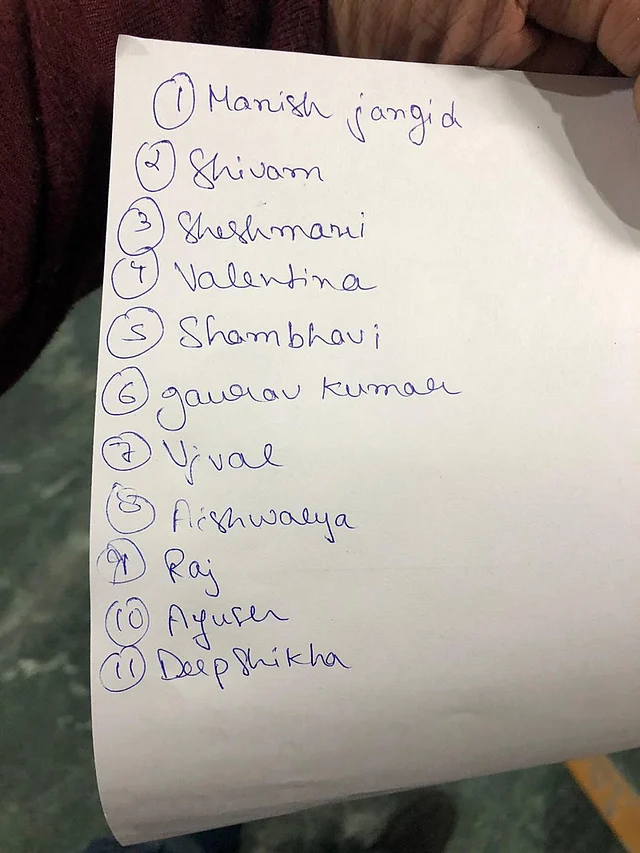 ① Manish jangid
② Shivam
③ Sheshmani
④ Valentina
⑤ Shambhavi
⑥ gaurav kumar
⑦ Ujval
⑧ Aishwarya
⑨ Raj
⑩ Ayush
⑪ Deepshikha